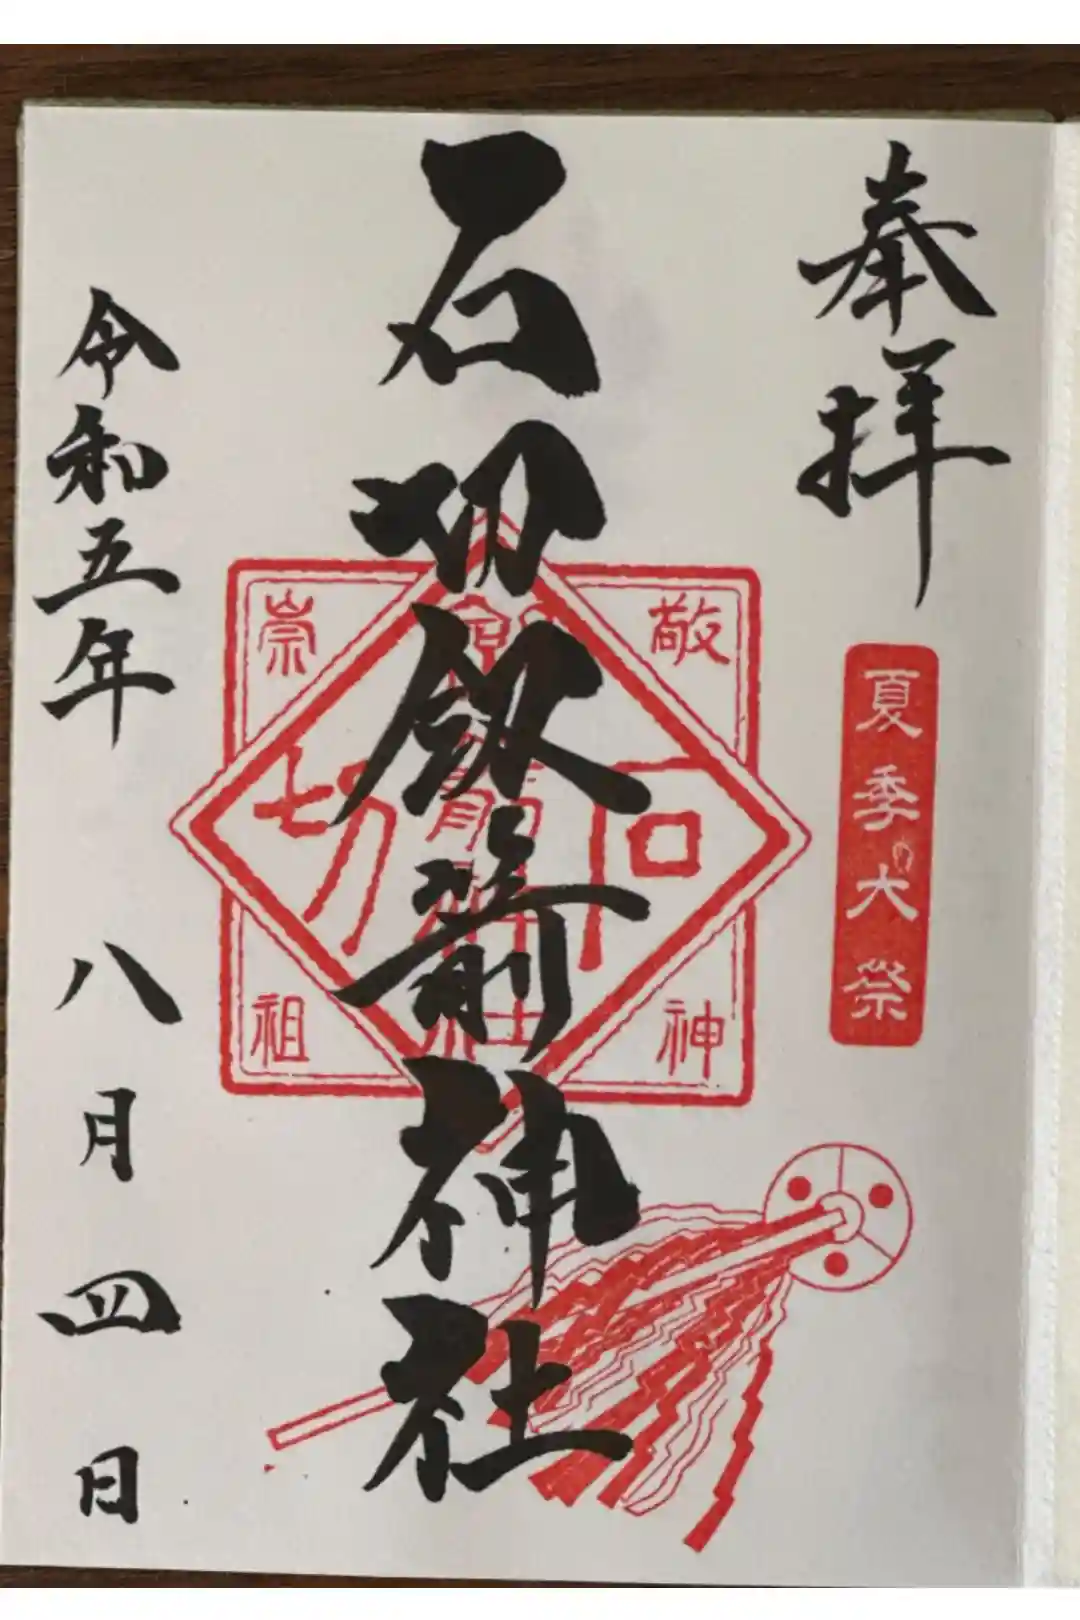 奉拝
夏季大祭
石切劔箭神社
敬神
崇祖
石切
令和五年 八月四日